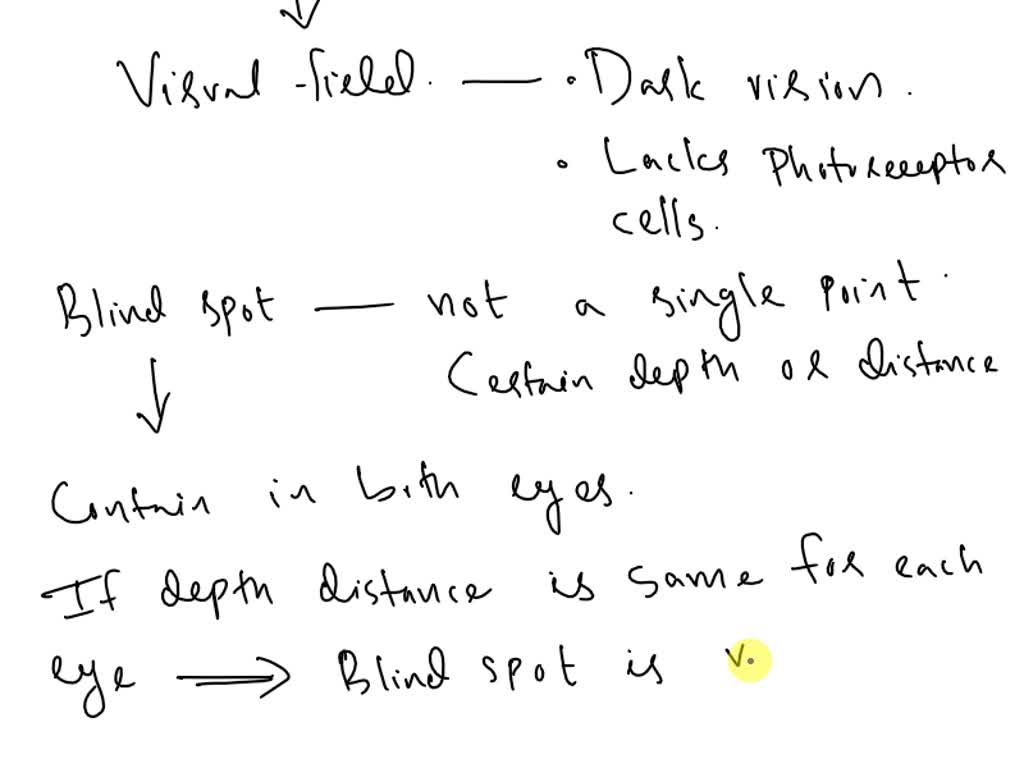 Visual field. — • Dark vision.
• Lacks Photoreceptor
cells.
Blind spot — not a single point.
Certain depth or distance
Contain in both eyes.
If depth distance is same for each
eye ⟹ Blind spot is